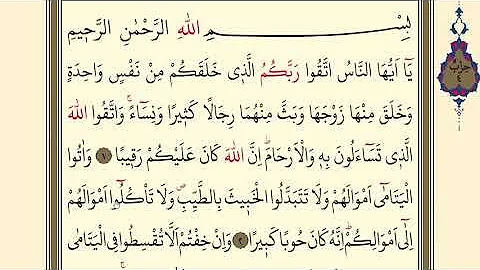 بِسْمِ اللهِ الرَّحْمٰنِ الرَّحٖيمِ
يَٓا اَيُّهَا النَّاسُ اتَّقُوا رَبَّكُمُ الَّذٖي خَلَقَكُمْ مِنْ نَفْسٍ وَاحِدَةٍ
وَخَلَقَ مِنْهَا زَوْجَهَا وَبَثَّ مِنْهُمَا رِجَالًا كَثٖيرًا وَنِسَٓاءًۚ وَاتَّقُوا اللهَ
الَّذٖي تَسَٓاءَلُونَ بِهٖ وَالْاَرْحَامَۜ اِنَّ اللهَ كَانَ عَلَيْكُمْ رَقٖيبًا ﴿١﴾ وَاٰتُوا
الْيَتَامٰٓى اَمْوَالَهُمْ وَلَا تَتَبَدَّلُوا الْخَبٖيثَ بِالطَّيِّبِࣕ وَلَا تَأْكُلُٓوا اَمْوَالَهُمْ
اِلٰٓى اَمْوَالِكُمْۜ اِنَّهُ كَانَ حُوبًا كَبٖيرًا ﴿٢﴾ وَاِنْ خِفْتُمْ اَلَّا تُقْسِطُوا فِي الْيَتَامٰى
حزب
٤